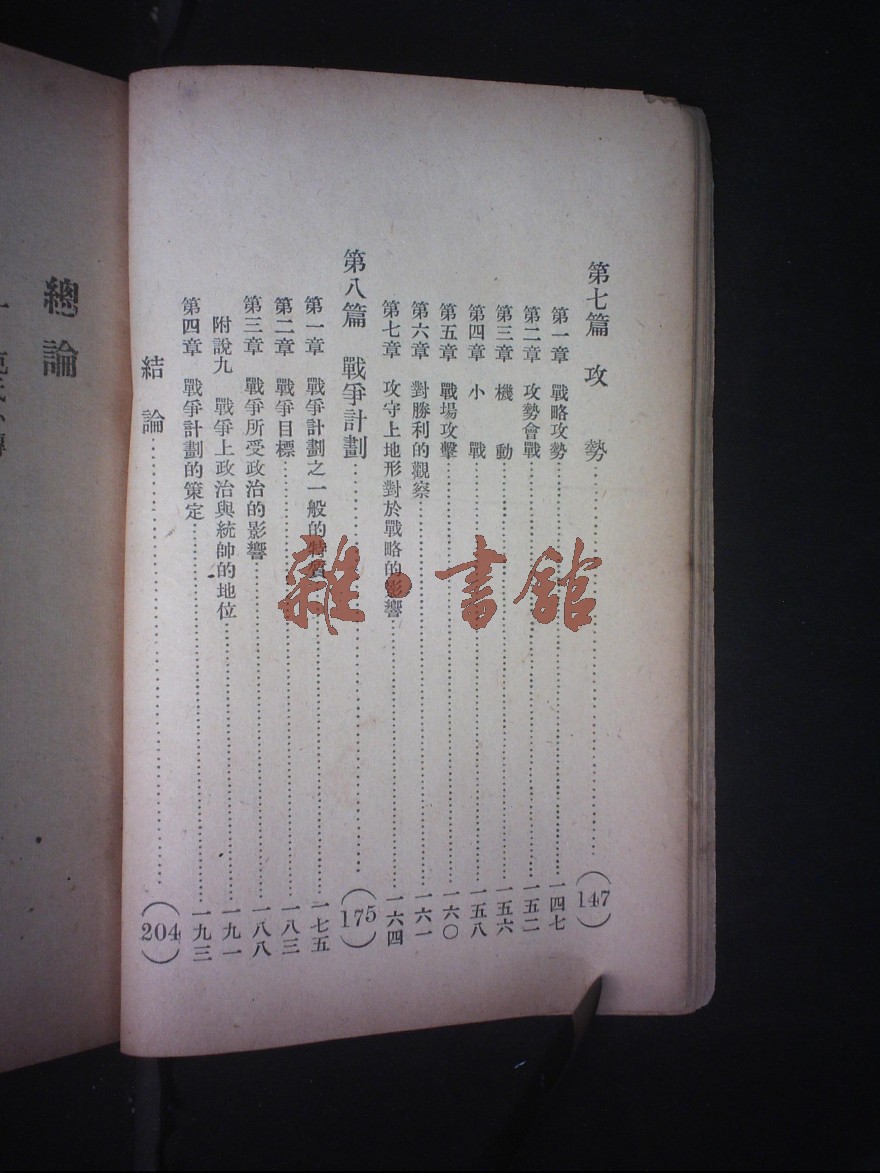 第七篇 攻 勢……(147)
第一章 戰略攻勢……一四七
第二章 攻勢會戰……一五二
第三章 機 動……一五六
第四章 小 戰……一五八
第五章 戰場攻擊……一六〇
第六章 對勝利的觀察……一六一
第七章 攻守上地形對於戰略的影響……一六四
第八篇 戰爭計劃……(175)
第一章 戰爭計劃之一般的特質……一七五
第二章 戰爭目標……一八三
第三章 戰爭所受政治的影響……一八八
附說九 戰爭上政治與統帥的地位……一九一
第四章 戰爭計劃的策定……一九三
結論……(204)
總論
雜·書館